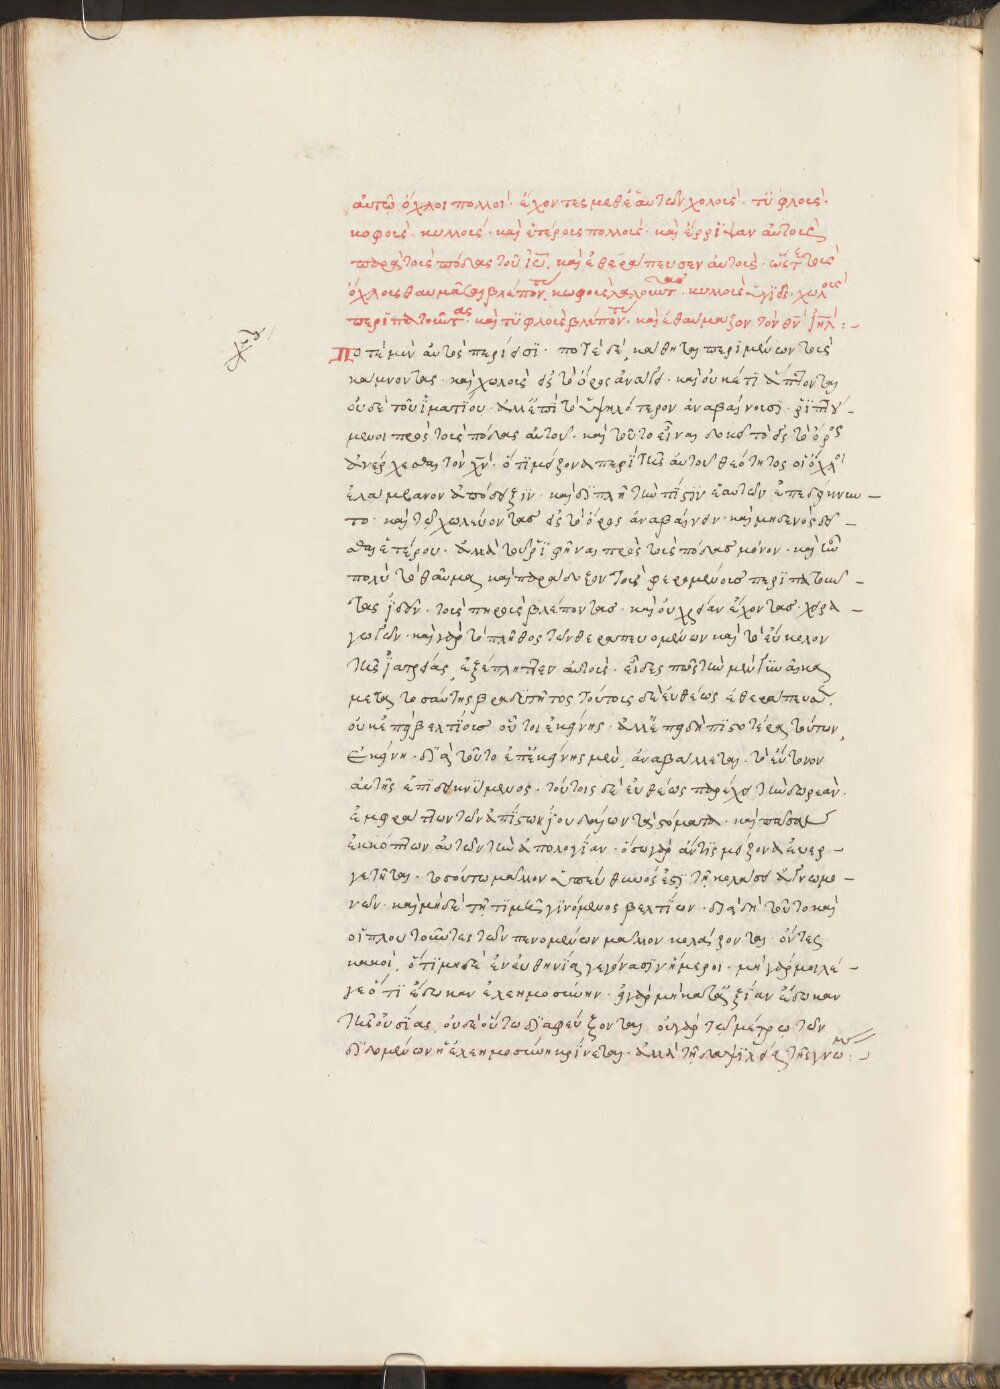 αὐτῶ ὄχλοι πολλοὶ· ἔχοντες μεθ' ἑαυτῶν χολοὺς· τυφλοὺς·
κοφοὺς· κυλλοὺς· καὶ ἑτέρους πολλοὺς· καὶ ἔρριψαν αὐτοὺς
παρὰ τοὺς πόδας τοῦ ἰυ, καὶ ἐθεράπευσεν αὐτοὺς· ὥστε τοὺς
ὄχλους θαυμάσαι βλέποντας κωφοὺς λαλοῦντας· κυλλοὺς ὑγιεῖς· χωλοὺς
περιπατοῦντας· καὶ τυφλοὺς βλέποντας· καὶ ἐδόξαζον τὸν θν ἰηλ:-
Ποτὲ μὲν αὐτὸς περίεισι· ποτὲ δὲ, κάθηται περιμένων τοὺς
κάμνοντας· καὶ χωλοὺς εἰς τὸ ὄρος ἀνάγει· καὶ οὐκέτι ἅπτονται
οὐδὲ τοῦ ἱματίου· ἀλλ' ἐπὶ τὸ ὑψηλότερον ἀναβαίνουσι· ῥιπτού-
μενοι πρὸς τοὺς πόδας αὐτοῦ· καὶ τοῦτο εἶναι δοκεῖ τὸ εἰς τὸ ὄρος
ἀνέρχεσθαι τὸν χν· ὅτι μείζονα περὶ τῆς αὐτοῦ θεότητος οἱ ὄχλοι
ἐλάμβανον ἀπόδειξιν· καὶ διπλῆ τὴν πίστιν ἑαυτῶν ἐπεδείκνυν-
το· καὶ τῶ χωλεύοντας εἰς τὸ ὄρος ἀναβαίνειν· καὶ μηδενὸς δεῖ-
σθαι ἑτέρου· ἀλλὰ τοῦ ῥιφῆναι πρὸς τοὺς πόδας μόνον· καὶ ἦν
πολὺ τὸ θαῦμα, καὶ παράδοξον τοὺς φερομένους περιπατοῦν-
τας ἰδεῖν· τοὺς πηροὺς βλέποντας· καὶ οὐ χρείαν ἔχοντας χειρα-
γωγῶν· καὶ γὰρ τὸ πλῆθος τῶν θεραπευομένων καὶ τὸ εὔκολον
τῆς ἰατρείας, ἐξέπληττεν αὐτοὺς· εἶδες πῶς τὴν μὲν γυναῖκα
μετὰ τοσαύτης βραδυτῆτος τούτους δὲ εὐθέως ἐθεράπευσεν.
οὐκ ἐπεὶ βελτίους οὗτοι ἐκείνης· ἀλλ' ἐπειδὴ πιστοτέρα τούτων,
ἐκείνη· διὰ τοῦτο ἐπ' ἐκείνης μὲν, ἀναβάλλεται· τὸ εὔτονον
αὐτῆς ἐπιδεικνύμενος· τούτοις δὲ εὐθέως παρέχει τὴν δωρεὰν·
ἐμφράττων τῶν ἀπίστων ἰουδαίων τὰ στόματα· καὶ πᾶσαν
ἐκκόπτων αὐτῶν τὴν ἀπολογίαν· ὅσω γὰρ ἄν τις μείζονα εὐερ-
γετῆται· τοσούτω μᾶλλον ὑπεύθυνός ἐστι τῆ κολάσει ἀγνωμο-
νῶν· καὶ μηδὲ τῆ τιμῆ γινόμενος βελτίων· διὰ δὴ τοῦτο καὶ
οἱ πλουτοῦντες τῶν πενομένων μᾶλλον κολάζονται· ὄντες
κακοί, ὅτι μηδὲ ἐν εὐθηνίᾳ γεγόνασιν ἥμεροι· μὴ γάρ μοι λέ-
γε ὅτι ἔδωκαν ἐλεημοσύνην· εἰ γὰρ μὴ κατ' ἀξίαν ἔδωκαν
τῆς οὐσίας, οὐδὲ οὕτω διαφεύξονται, οὐ γὰρ τῶ μέτρω τῶν
διδομένων ἡ ἐλεημοσύνη κρίνεται· ἀλλὰ τῆ δαψιλείᾳ τῆς γνώμης:-